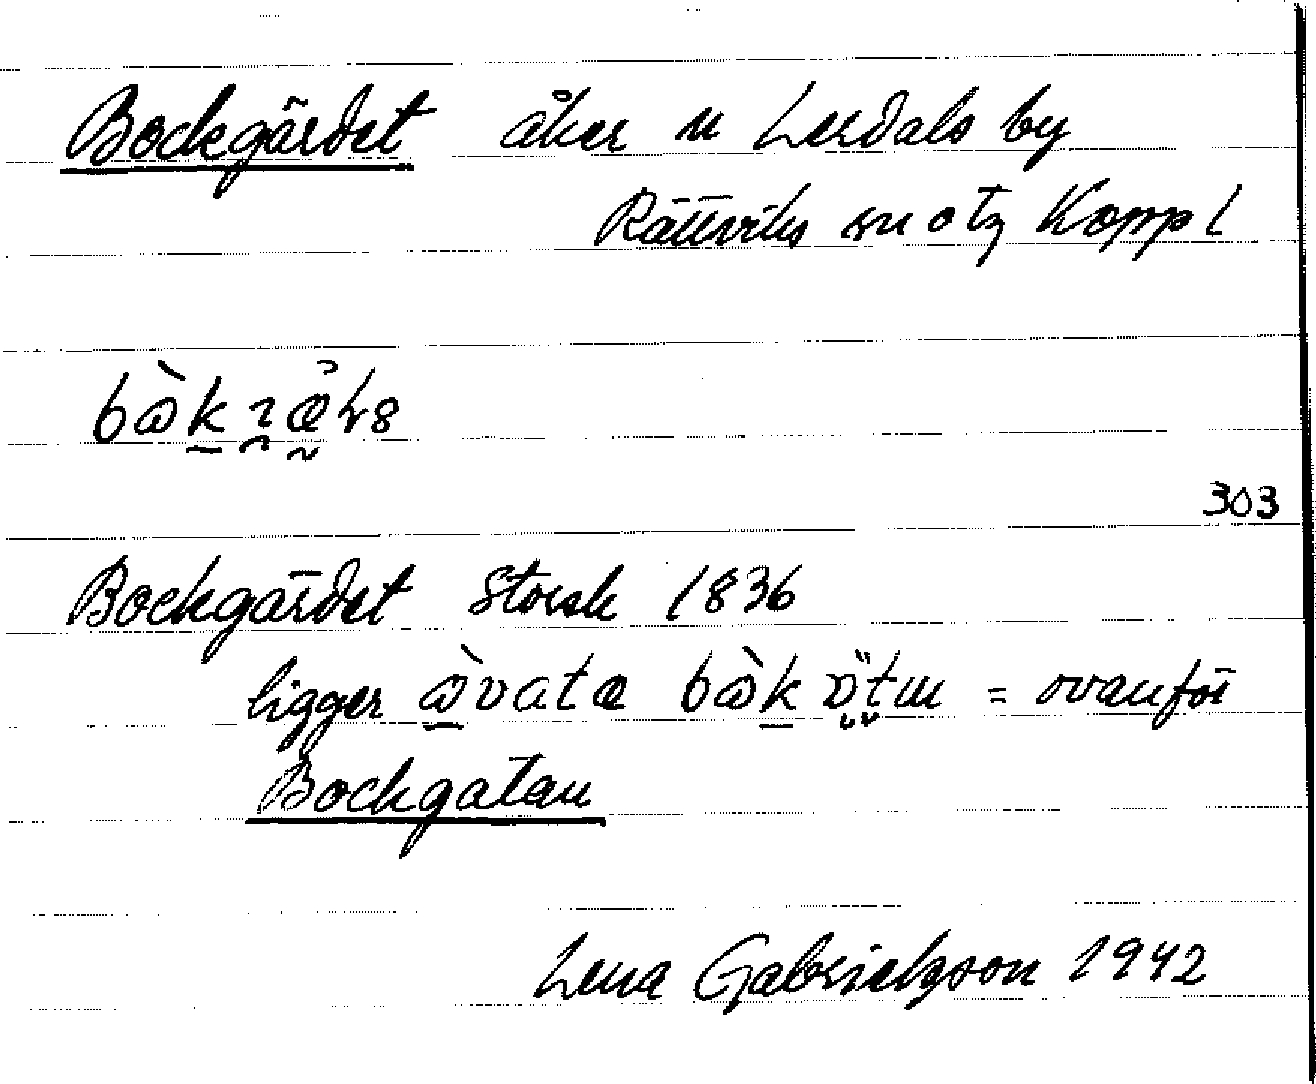 Bockgärdet åker n Lerdals by
Rättviks sn o tg Kopp l
303
Bockgärdet Storsk 1836
ligger = ovanför
Bockgatan
Lena Gabrielsson 1942